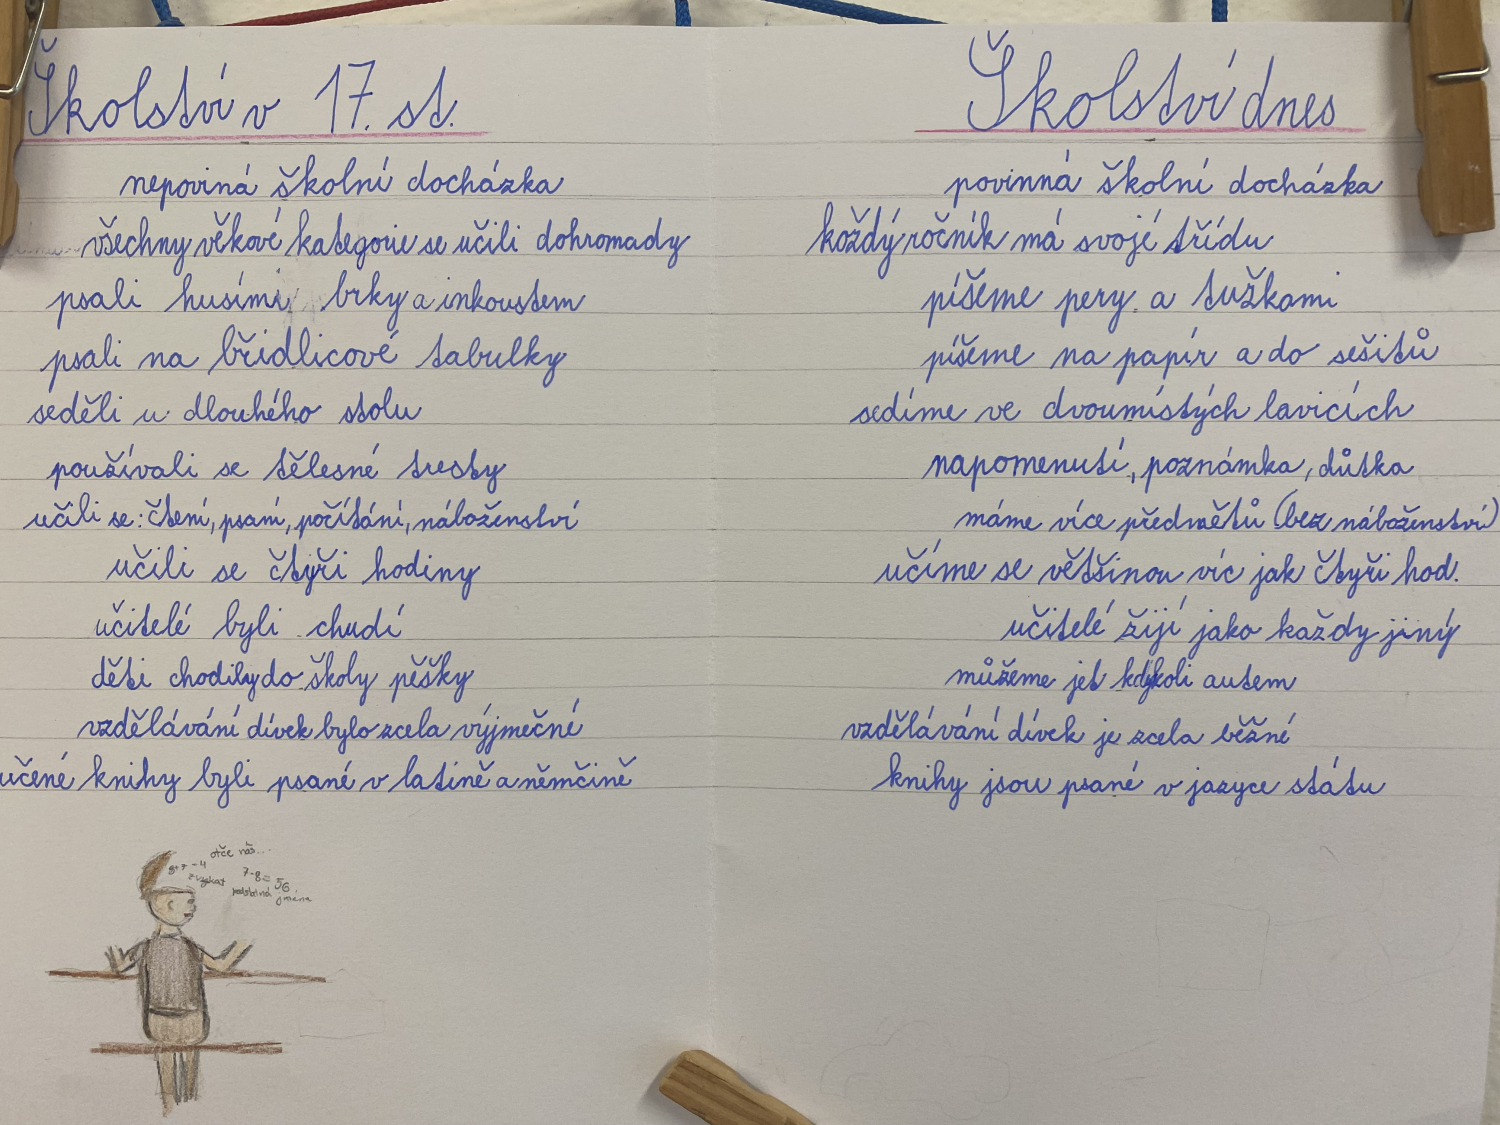 Školství v 17. st.
nepoviná školní docházka
všechny věkové kategorie se učili dohromady
psali husími brky a inkoustem
psali na břidlicové tabulky
seděli u dlouhého stolu
používali se tělesné tresty
učili se: čtení, psaní, počítání, náboženství
učili se čtyři hodiny
učitelé byli chudí
děti chodily do školy pěšky
vzdělávání dívek bylo zcela výjmečné
učené knihy byli psané v latině a němčině
otče náš...
8+7-4
7·8=56
podstatná jména
Školství dnes
povinná školní docházka
každý ročník má svojé třídu
píšeme pery a tužkami
píšeme na papír a do sešitů
sedíme ve dvoumístých lavicích
napomenutí, poznámka, důtka
máme více předmětů (bez náboženství)
učíme se většinou víc jak čtyři hod.
učitelé žijí jako každy jiný
můžeme jet kdykoli autem
vzdělávání dívek je zcela běžné
knihy jsou psané v jazyce státu